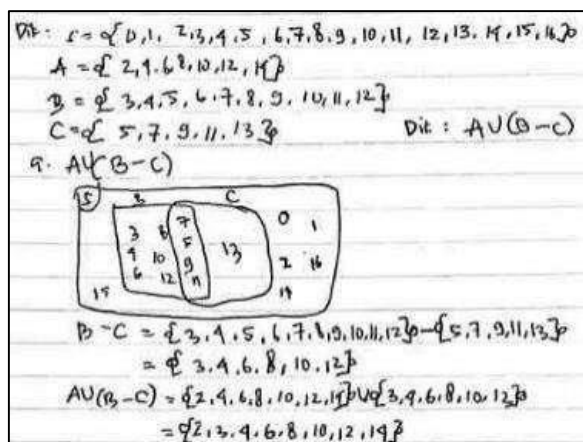 Dik : S = { 0,1, 2,3,4,5 ,6,7,8,9,10,11, 12,13. 14,15,16}
A = { 2,4.6,8,10,12,14}
B = { 3,4,5, 6,7,8,9. 10,11,12}
C = { 5,7,9,11.13}
Dit : A∪(B-C)
a. A∪(B-C)
S
B C
0 1
3 8 7
5 13
4 10
9 2 16
6 12 11
15 14
B-C = {3,4,5,6,7,8,9,10,11,12}-{5,7,9,11,13}
= { 3,4.6,8,10,12}
A∪(B-C) = {2,4.6.8,10,12,14}∪{3,4,6,8,10,12}
= {2,3,4.6,8,10,12,14}